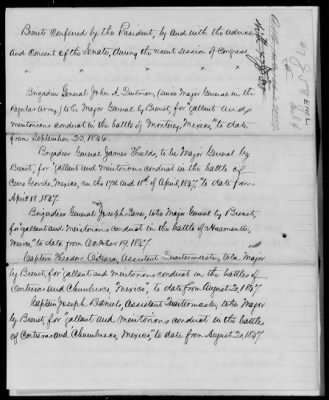 Brevets conferred by the President, by and with the advice
and consent of the Senate, during the recent session of Congress
Brigadier General John A. Quitman, (since Major General in the
Regular Army,) to be Major General by Brevet, for "gallant and
meritorious conduct in the battle of Monterey, Mexico," to date
from September 23, 1846.
Brigadier General James Shields, to be Major General by
Brevet, for "gallant and meritorious conduct in the battle of
Cerro Gordo, Mexico, on the 17th and 18th of April, 1847," to date from
April 18, 1847.
Brigadier General Joseph Lane, to be Major General by Brevet,
for "gallant and meritorious conduct in the battle of Huamantla,
Mexico," to date from October 9, 1847.
Captain Theodore O'Hara, Assistant Quartermaster, to be Major
by Brevet, for "gallant and meritorious conduct in the battles of
Contreras and Churubusco, Mexico," to date from August 20, 1847
Captain Joseph Daniels, Assistant Quartermaster, to be Major
by Brevet, for "gallant and meritorious conduct in the battles
of Contreras and Churubusco, Mexico," to date from August 20, 1847.